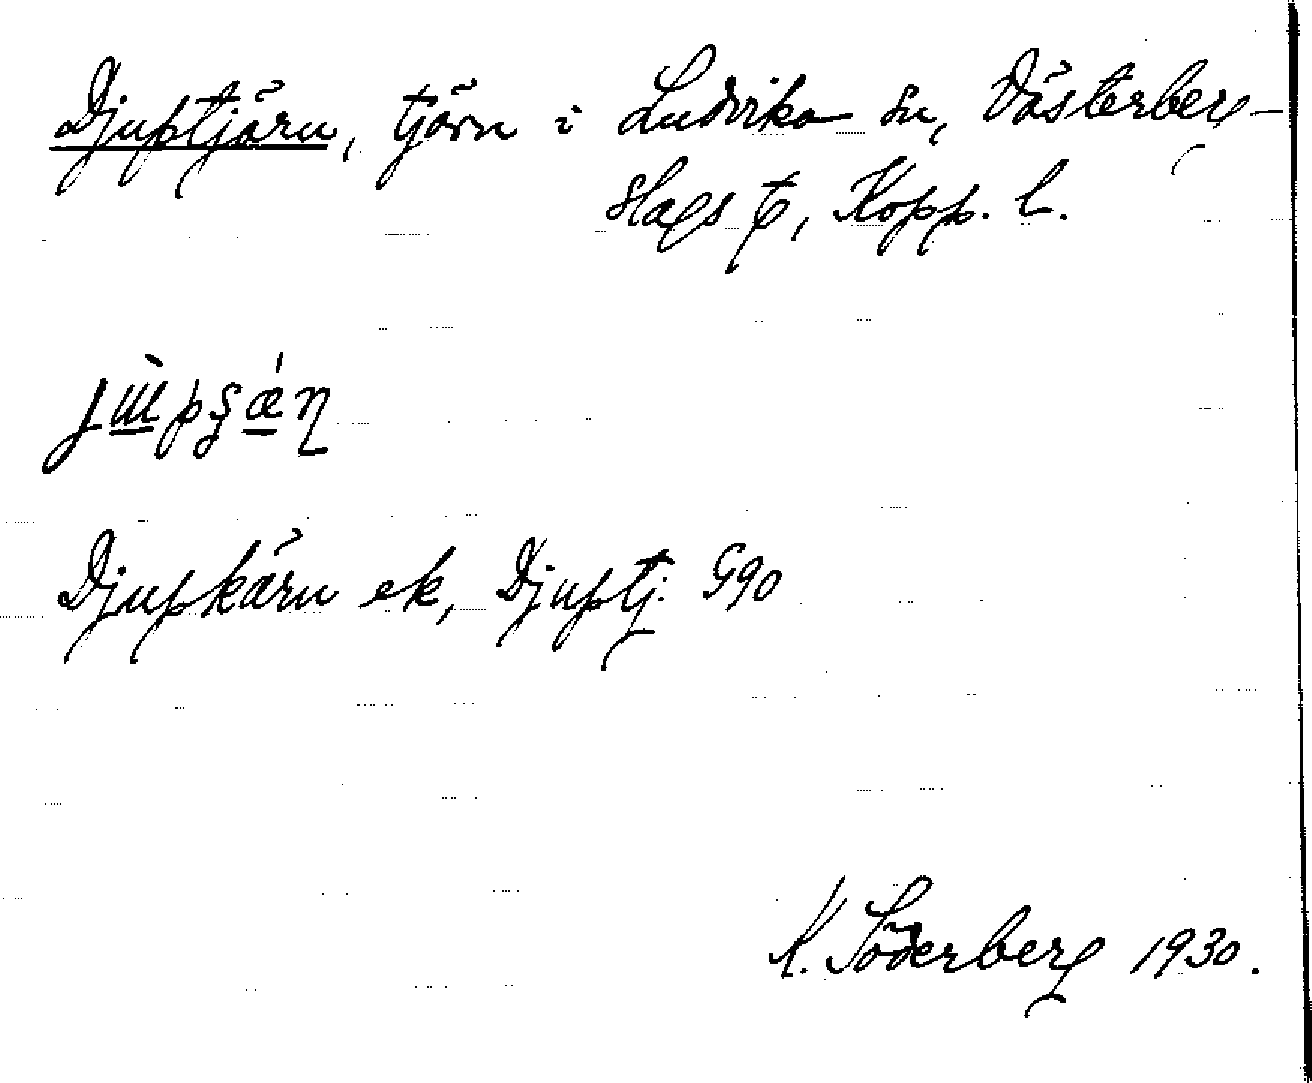 Djuptjärn, tjärn i Ludvika sn, Västerbergs-
slags t, Kopp. l.
Djupkärn ek, Djuptj. G90
K. Söderberg 1930.